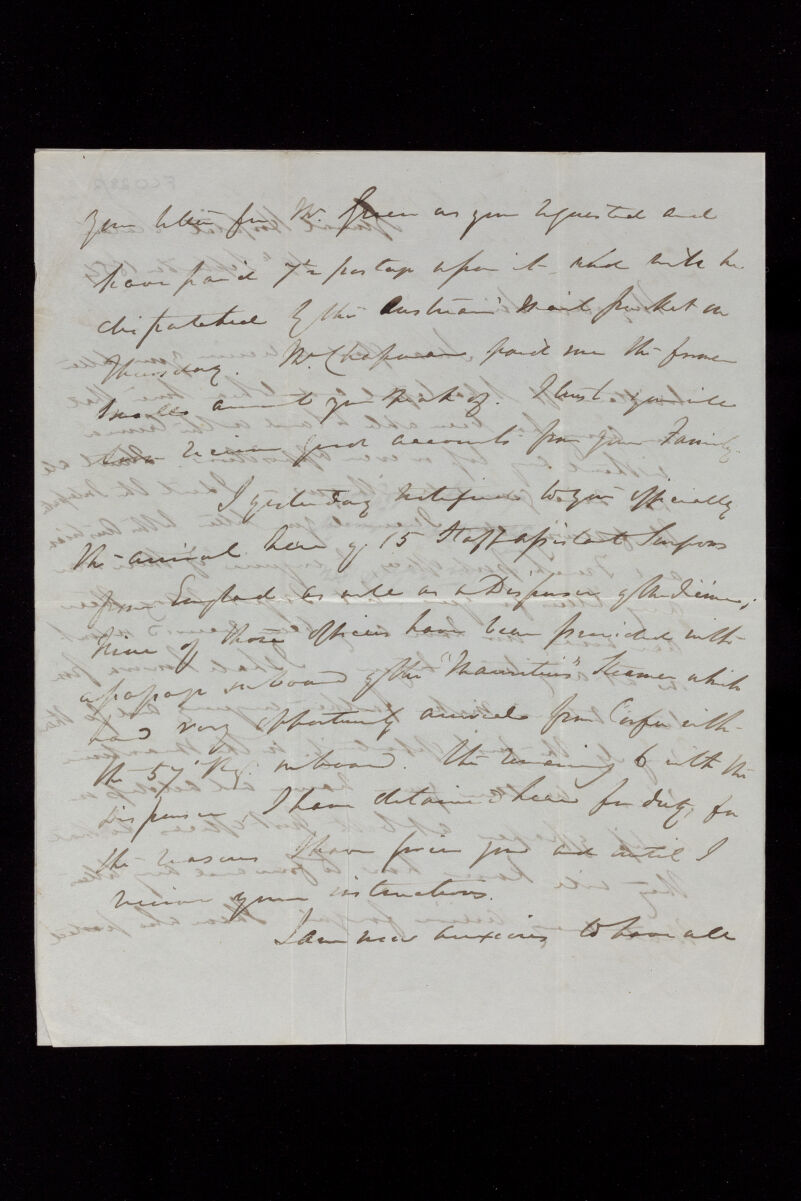 your letter for Mr. Green as you requested and
have paid 7d postage upon it, which will be
dispatched by the Austrian Mail Packet on
Thursday. Mr. Chapman paid me the former
small amount you speak of. I trust you will
soon receive good accounts from your Family.
I yesterday notified to you officially
the arrival here of 15 Staff assistant Surgeons
from England as well as a Dispenser of Medicines;
Nine of those Officers have been provided with
a passage on board of the "Mauritius" Steamer which
had very opportunely arrived from Corfu with
the 57 Reg. on board. The remaining 6 with the
Dispenser I have detained here for duty, for
the reasons I have given you and until I
receive your instructions.
I am now anxious to have all